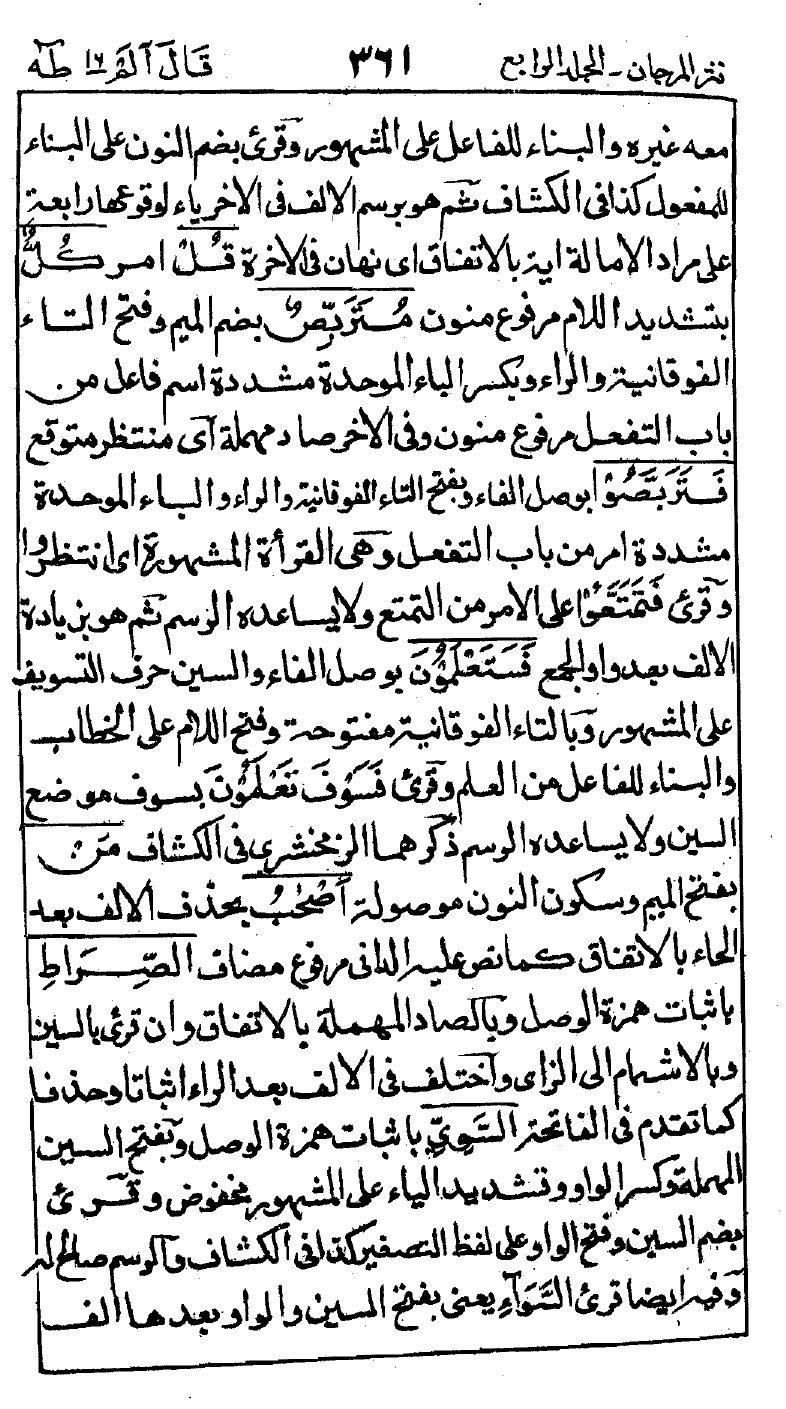 نثر المرجان - الجلد الرابع ٣٦١ قَالَ آلَمْ ١٦ طٰهٰ
معه غيره والبناء للفاعل على المشهور وقرئ بضم النون على البناء
للمفعول كذا فى الكشاف ثم هو برسم الالف فى الاخر ياء لوقوعها رابعة
على مراد الامالة اية بالاتفاق اى نهان فى الاخرة قُلْ امر كُلٌّ
بتشديد اللام مرفوع منون مُّتَرَبِّصٌ بضم الميم وفتح التاء
الفوقانية والراء وبكسر الباء الموحدة مشددة اسم فاعل من
باب التفعل مرفوع منون وفى الاخر صاد مهملة آى منتظر متوقع
فَتَرَبَّصُوْا بوصل الفاء وبفتح التاء الفوقانية والراء والباء الموحدة
مشددة امر من باب التفعل وهى القرأة المشهورة اى انتظروا
وقرئ فَتَمَتَّعُوْا على الامر من التمتع ولا يساعده الرسم ثم هو بزيادة
الالف بعد واو الجمع فَسَتَعْلَمُوْنَ بوصل الفاء والسين حرف التسويف
على المشهور وبالتاء الفوقانية مفتوحة وفتح اللام على الخطاب
والبناء للفاعل من العلم وقرئ فَسَوْفَ تَعْلَمُوْنَ بسوف موضع
السين ولا يساعده الرسم ذكرهما الزمخشرى فى الكشاف مَنْ
بفتح الميم وسكون النون موصولة اَصْحٰبُ بحذف الالف بعد
الحاء بالاتفاق كما نص عليه الدانى مرفوع مضاف الصِّرَاطِ
باثبات همزة الوصل وبالصاد المهملة بالاتفاق وان قرئ بالسين
وبالاشمام الى الزاى واختلف فى الالف بعد الراء اثباتا وحذفا
كما تقدم فى الفاتحة السَّوِيِّ باثبات همزة الوصل وبفتح السين
المهملة وكسر الواو وتشديد الياء على المشهور مخفوض وقرئ
بضم السين وفتح الواو على لفظ التصغير كذا فى الكشاف والرسم صالح له
وفيه ايضا قرئ السَّوَآءِ يعنى بفتح السين والواو بعدها الف